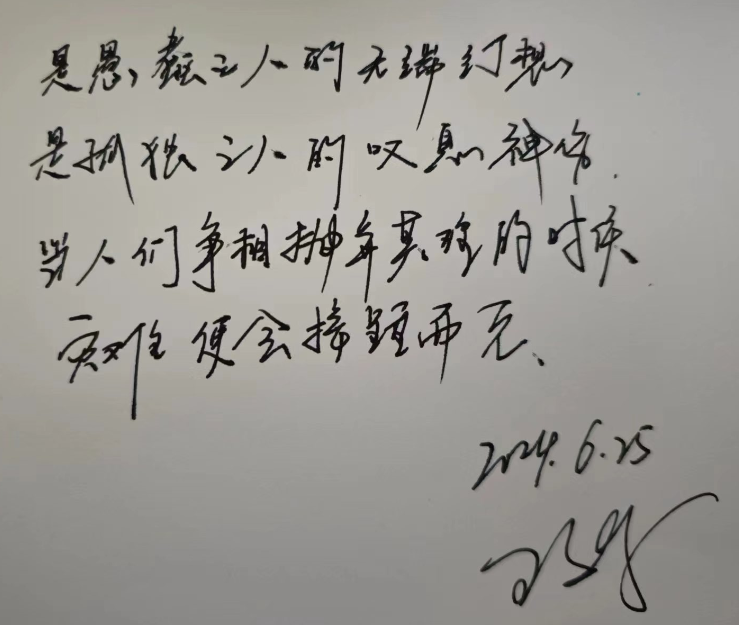 是愚蠢之人的无端幻想
是孤独之人的叹息神伤.
当人们争相抛弃真理的时候
灾难便会接踵而至、
2024.6.25